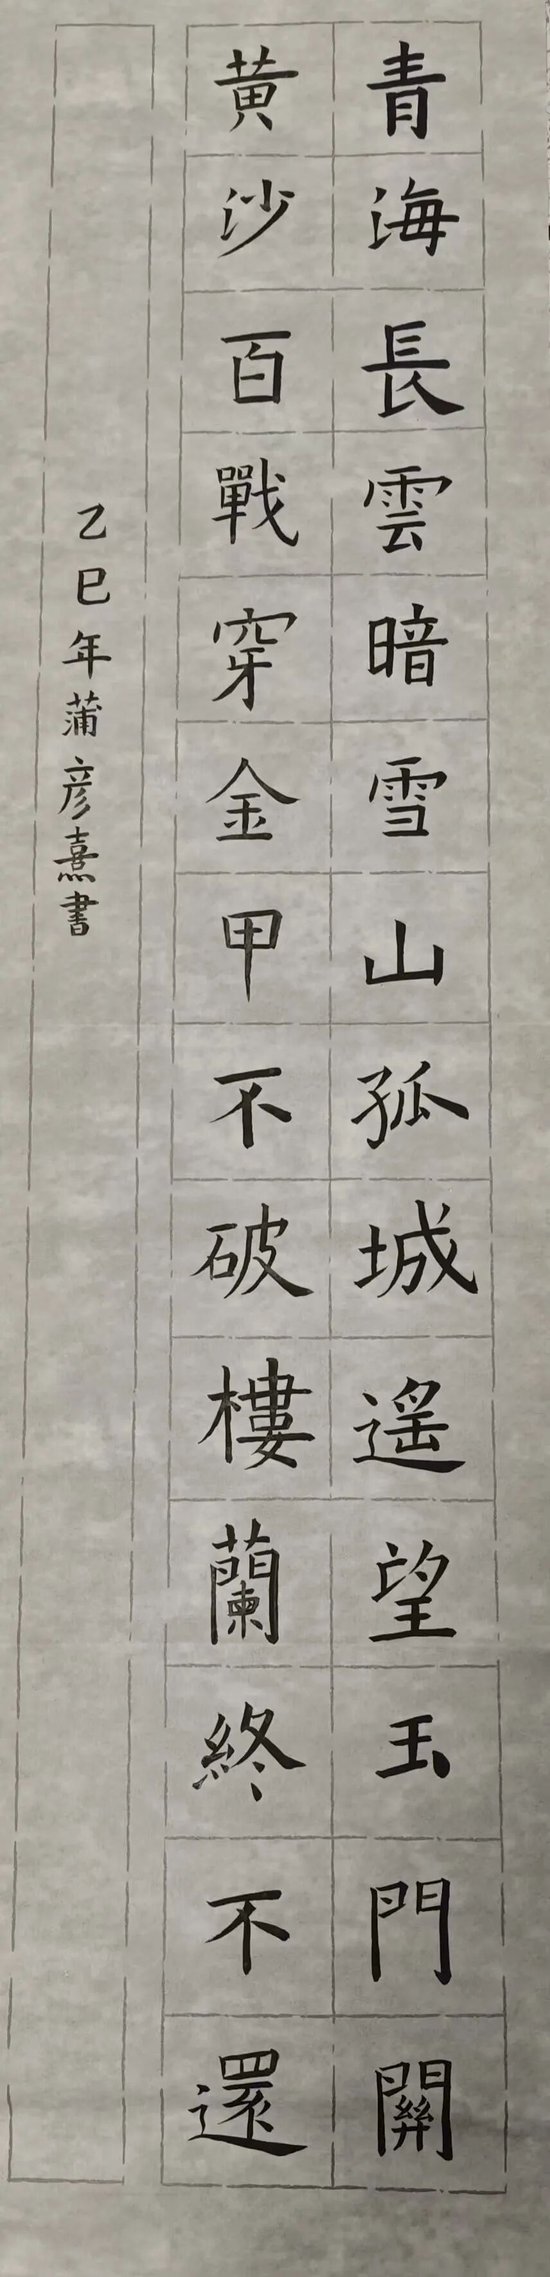 青海長雲暗雪山孤城遥望玉門關
黄沙百戰穿金甲不破樓蘭終不還
乙巳年蒲彦熹書